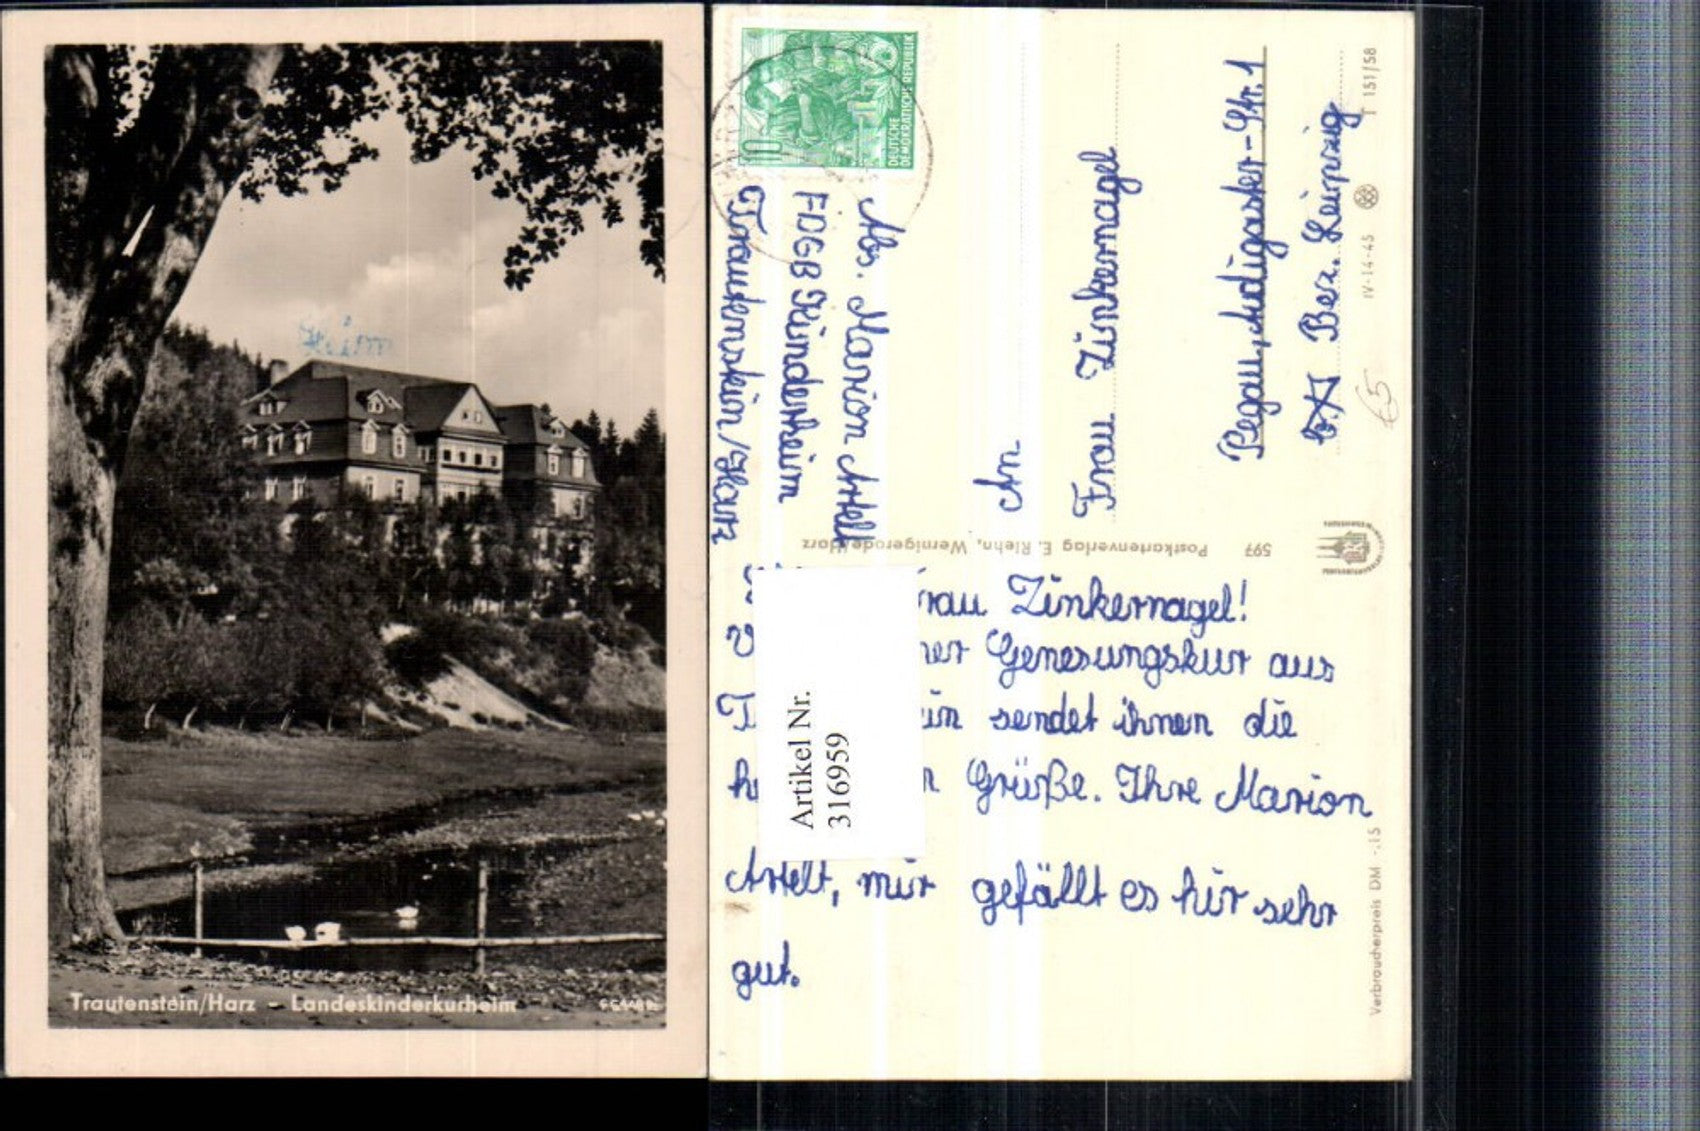 Heim
Trautenstein/Harz – Landeskinderkurheim
10
DEUTSCHE
DEMOKRATISCHE REPUBLIK
Abs. Marion Artelt
FDGB Kinderheim
Trautenstein/Harz
An
Frau Zinkernagel
Pegau, Audigaster-Str. 1
Bez. Leipzig
T 151/58
IV-14-45
€5
597
Postkartenverlag E. Riehn, Wernigerode/Harz
rau Zinkernagel!
ner Genesungskur aus
T in sendet ihnen die
h n Grüße. Ihre Marion
Artelt, mir gefällt es hir sehr
gut.
Artikel Nr.
316959
Verbraucherpreis DM -.15